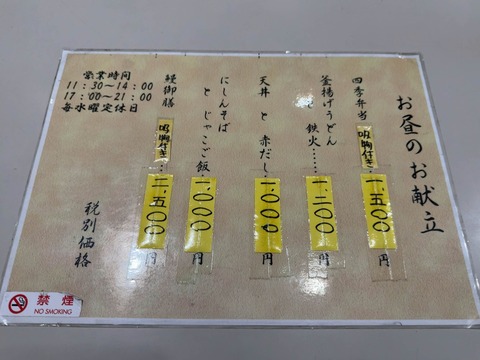 お昼のお献立
四季弁当 吸物付き 一、五〇〇円
釜揚げうどん
と 鉄火……一、二〇〇円
天丼 と 赤だし 一、〇〇〇円
にしんそば
と じゃこご飯… 一、〇〇〇円
鰻御膳 吸物付き 二、五〇〇円
税別価格
営業時間
11：30～14：00
17：00～21：00
毎水曜定休日
禁煙
NO SMOKING